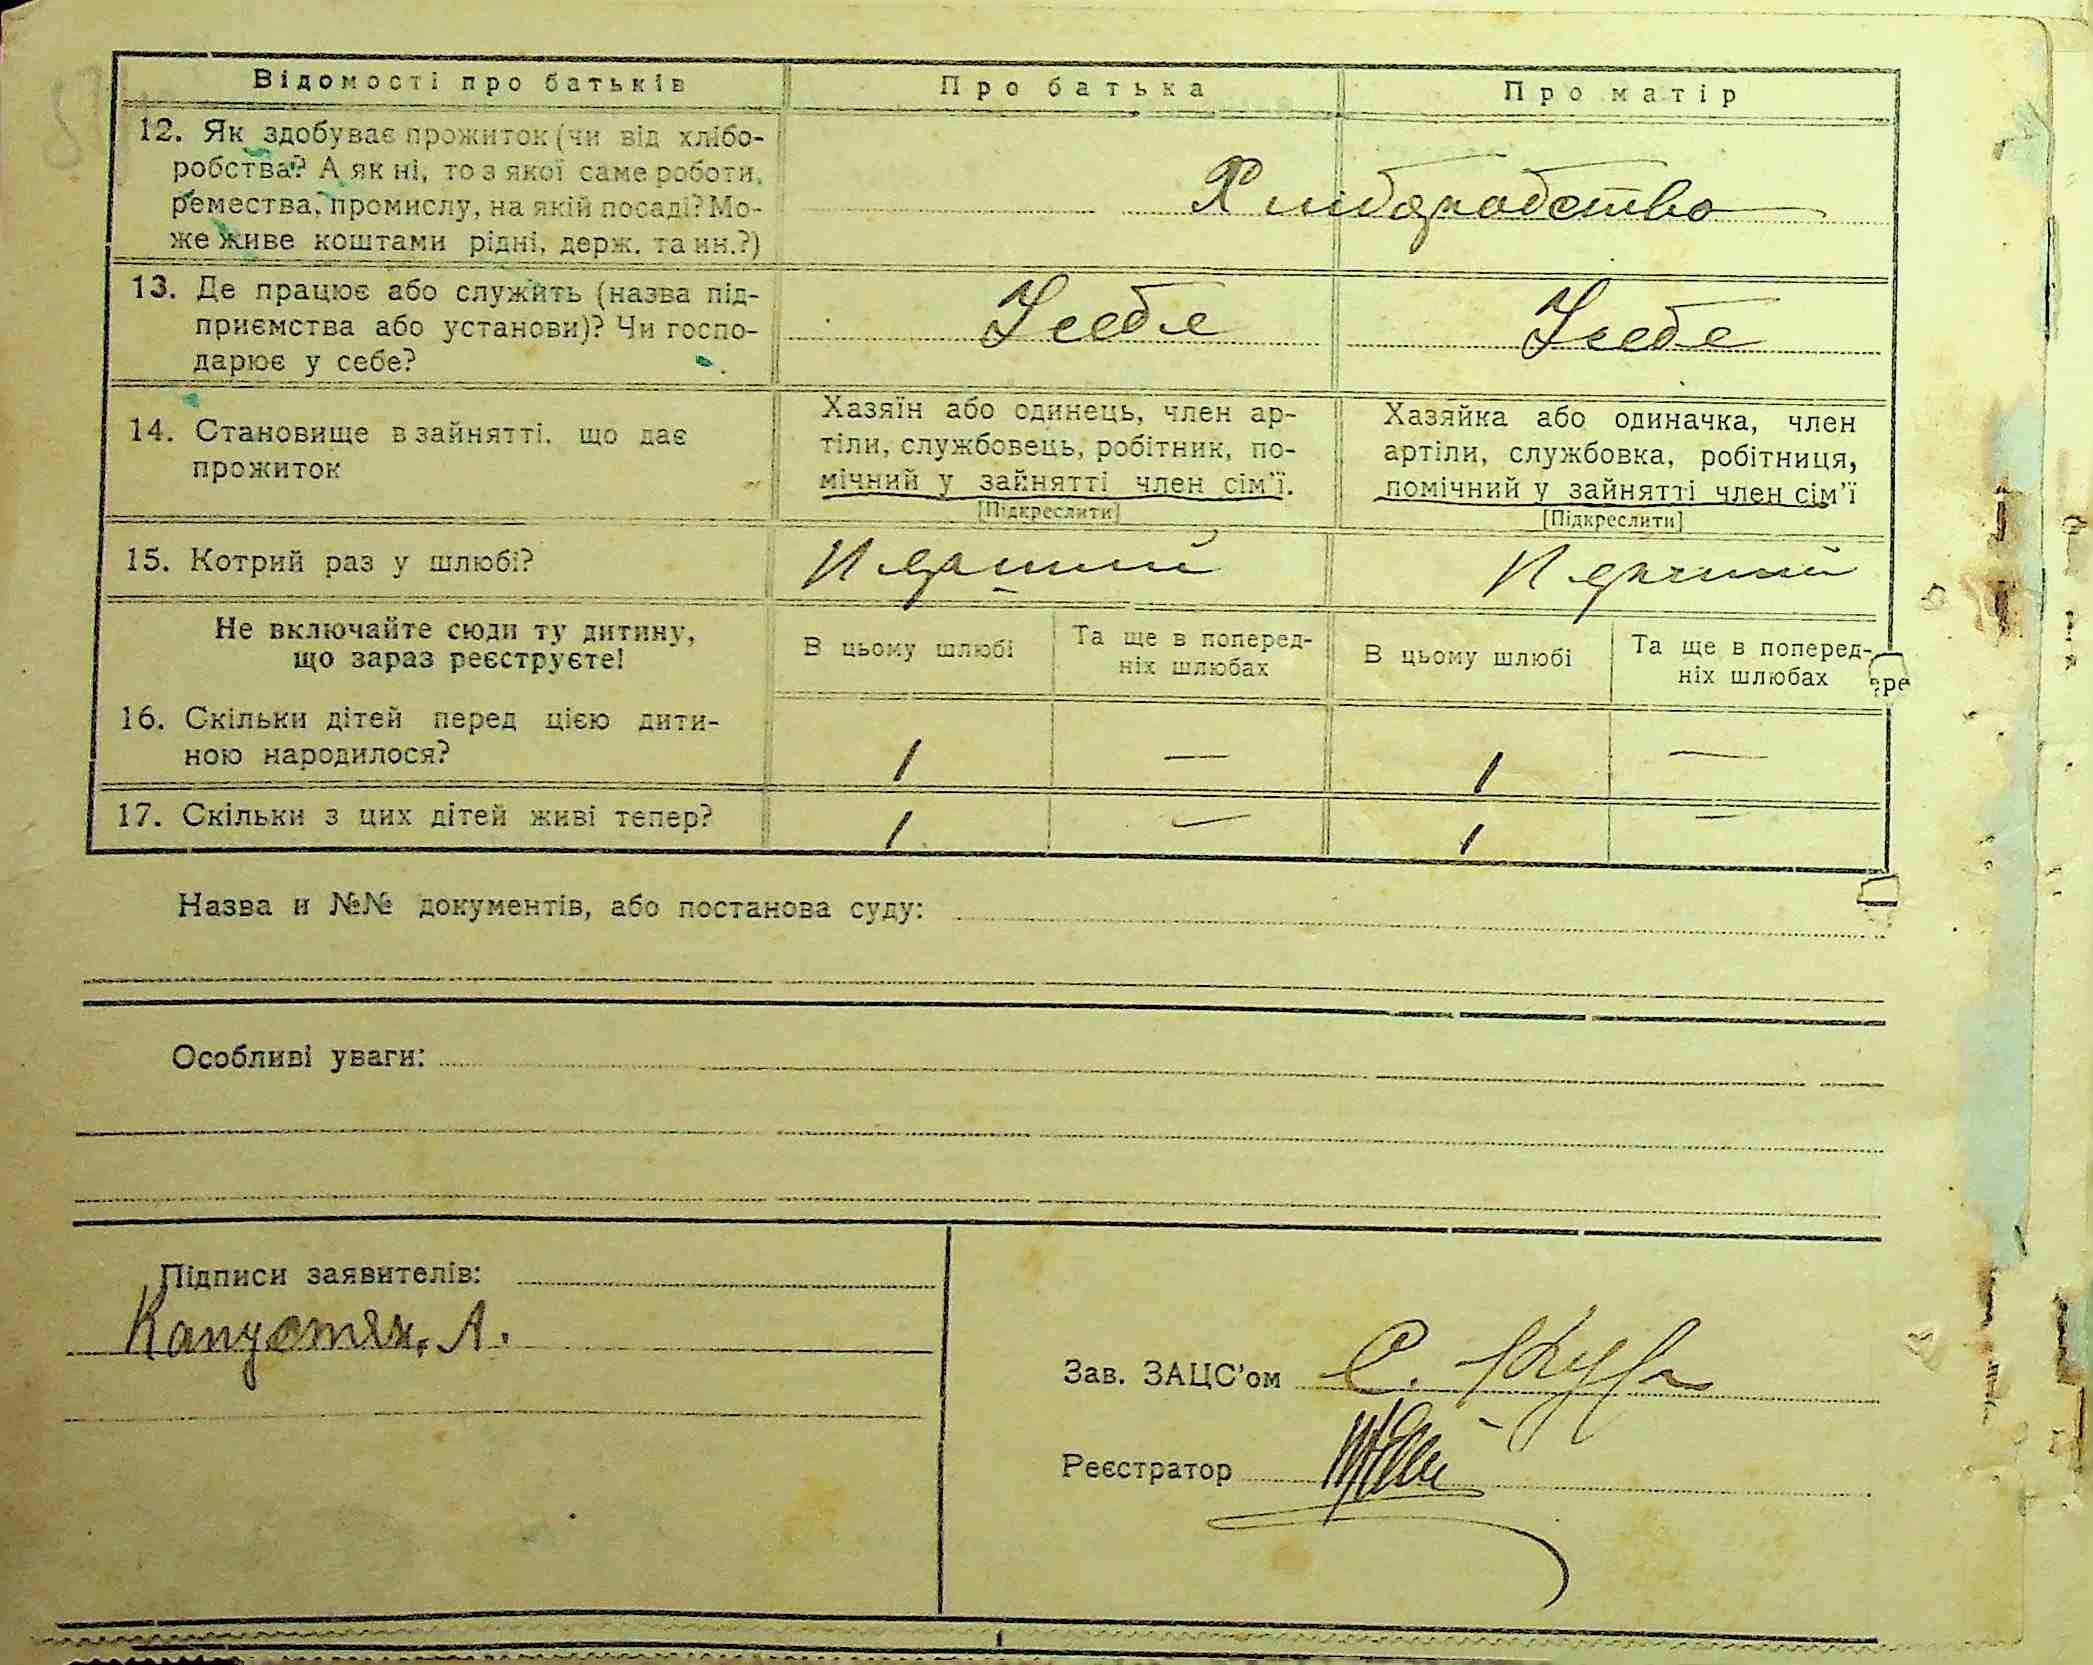 Відомості про батьків Про батька Про матір
12. Як здобуває прожиток (чи від хлібо-
робства? А як ні, то з якої саме роботи,
ремества, промислу, на якій посаді? Мо-
же живе коштами рідні, держ. та ин.?)
Хліборобство
13. Де працює або служить (назва під-
приємства або установи)? Чи госпо-
дарює у себе?
У себе У себе
14. Становище в зайнятті, що дає
прожиток
Хазяїн або одинець, член ар-
тіли, службовець, робітник, по-
мічний у зайнятті член сім'ї.
[Підкреслити]
Хазяйка або одиначка, член
артіли, службовка, робітниця,
помічний у зайнятті член сім'ї
[Підкреслити]
15. Котрий раз у шлюбі? Перший Перший
Не включайте сюди ту дитину,
що зараз реєструєте!
В цьому шлюбі
Та ще в поперед-
ніх шлюбах
В цьому шлюбі
Та ще в поперед-
ніх шлюбах
16. Скільки дітей перед цією дити-
ною народилося?
1 — 1 —
17. Скільки з цих дітей живі тепер? 1 — 1 —
Назва и №№ документів, або постанова суду:
Особливі уваги:
Підписи заявителів:
Капустян, А.
Зав. ЗАЦС'ом С.
Реєстратор